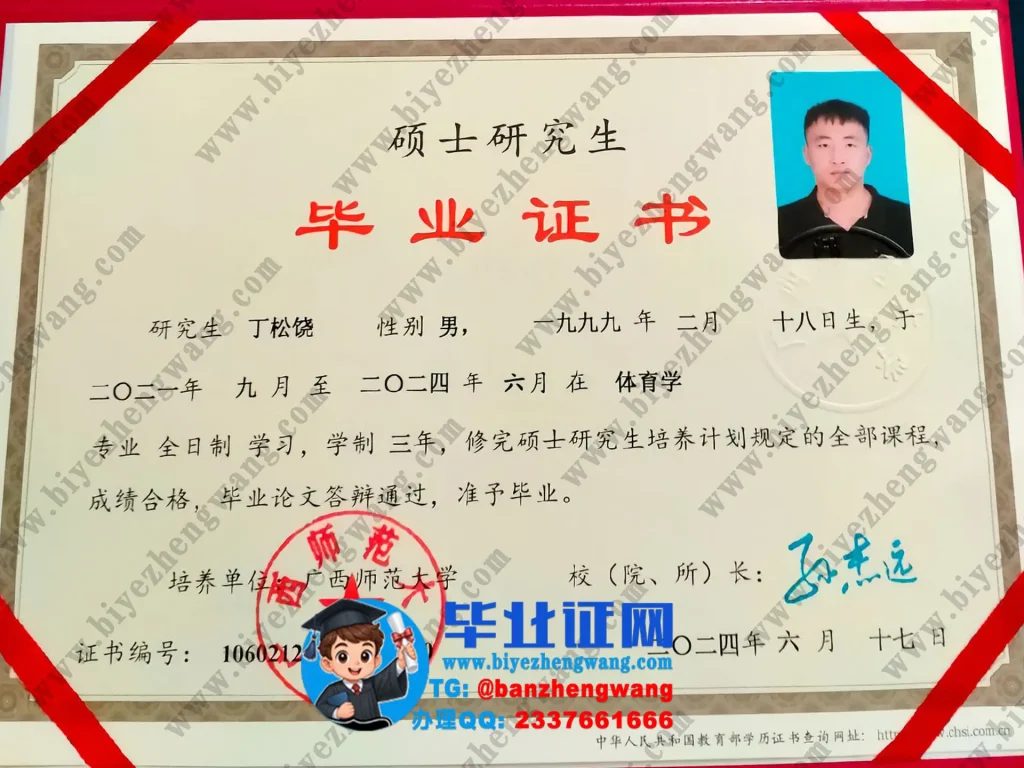 硕士研究生
毕业证书
研究生 丁松饶 性别 男， 一九九九 年 二月 十八日生，于
二〇二一年 九 月 至 二〇二四 年 六 月 在 体育学
专业 全日制 学习，学制 三年，修完硕士研究生培养计划规定的全部课程，
成绩合格，毕业论文答辩通过，准予毕业。
培养单位：广西师范大学 校（院、所）长： 孙杰远
西师范大
证书编号： 1060212 二〇二四年 六 月 十七 日
毕业证网
www.biyezhengwang.com
TG: @banzhengwang
办理QQ: 2337661666
中华人民共和国教育部学历证书查询网址： http www.chsi.com.cn
www.biyezhengwang.com